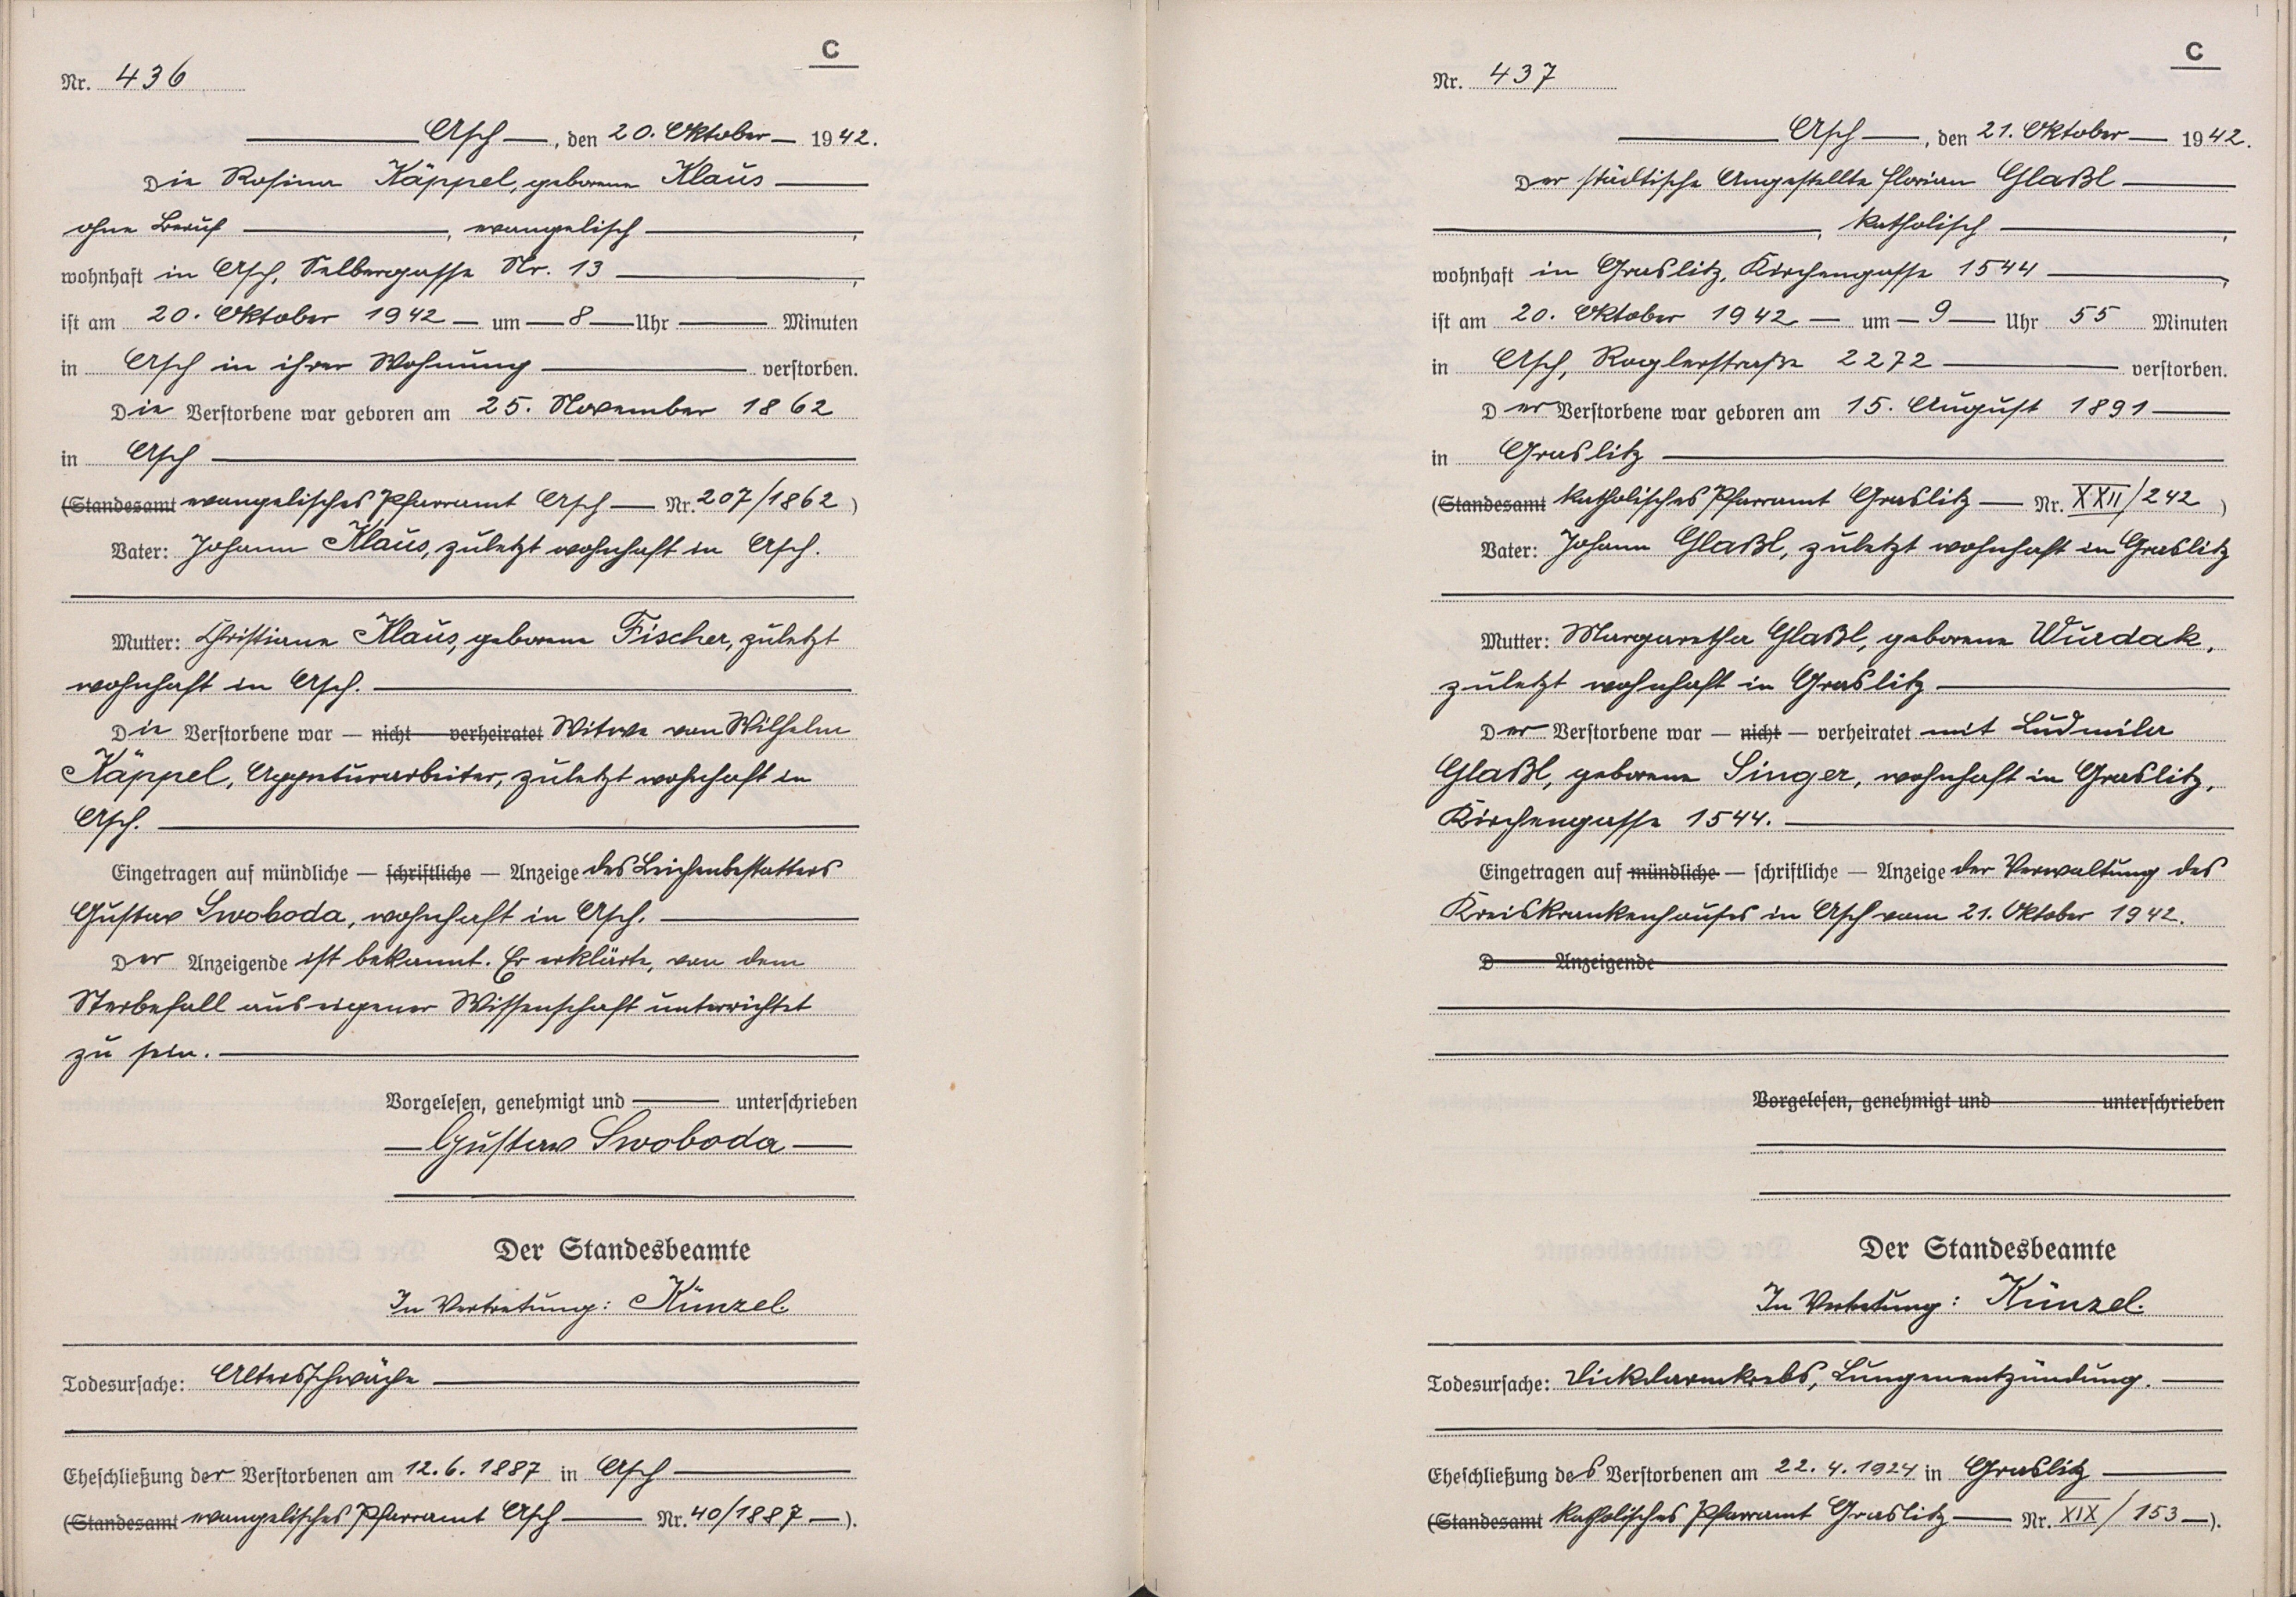 C
Nr. 436
Asch, den 20. Oktober 1942.
Die Rosina Käppel, geborene Klaus
ohne Beruf, evangelisch,
wohnhaft in Asch, Selbergasse Nr. 13,
ist am 20. Oktober 1942 um 8 Uhr Minuten
in Asch in ihrer Wohnung verstorben.
Die Verstorbene war geboren am 25. November 1862
in Asch
(Standesamt evangelisches Pfarramt Asch Nr. 207/1862)
Vater: Johann Klaus, zuletzt wohnhaft in Asch.
Mutter: Christiane Klaus, geborene Fischer, zuletzt
wohnhaft in Asch.
Die Verstorbene war — nicht — verheiratet Witwe von Wilhelm
Käppel, Appreturarbeiter, zuletzt wohnhaft in
Asch.
Eingetragen auf mündliche — schriftliche — Anzeige des Leichenbestatters
Gustav Swoboda, wohnhaft in Asch.
Der Anzeigende ist bekannt. Er erklärte, von dem
Sterbefall aus eigener Wissenschaft unterrichtet
zu sein.
Vorgelesen, genehmigt und unterschrieben
Gustav Swoboda
Der Standesbeamte
In Vertretung: Künzel.
Todesursache: Altersschwäche
Eheschließung der Verstorbenen am 12.6.1887 in Asch
(Standesamt evangelisches Pfarramt Asch Nr. 40/1887).
C
Nr. 437
Asch, den 21. Oktober 1942.
Der städtische Angestellte Florian Glaßl
, katholisch,
wohnhaft in Graslitz, Kirchengasse 1544,
ist am 20. Oktober 1942 um 9 Uhr 55 Minuten
in Asch, Roglerstraße 2272 verstorben.
Der Verstorbene war geboren am 15. August 1891
in Graslitz
(Standesamt katholisches Pfarramt Graslitz Nr. XXII/242)
Vater: Johann Glaßl, zuletzt wohnhaft in Graslitz
Mutter: Margaretha Glaßl, geborene Wurdak,
zuletzt wohnhaft in Graslitz
Der Verstorbene war — nicht — verheiratet mit Ludmila
Glaßl, geborene Singer, wohnhaft in Graslitz,
Kirchengasse 1544.
Eingetragen auf mündliche — schriftliche — Anzeige der Verwaltung des
Kreiskrankenhauses in Asch vom 21. Oktober 1942.
D Anzeigende
Vorgelesen, genehmigt und unterschrieben
Der Standesbeamte
In Vertretung: Künzel.
Todesursache: Dickdarmkrebs, Lungenentzündung.
Eheschließung des Verstorbenen am 22.4.1924 in Graslitz
(Standesamt katholisches Pfarramt Graslitz Nr. XIX/153).